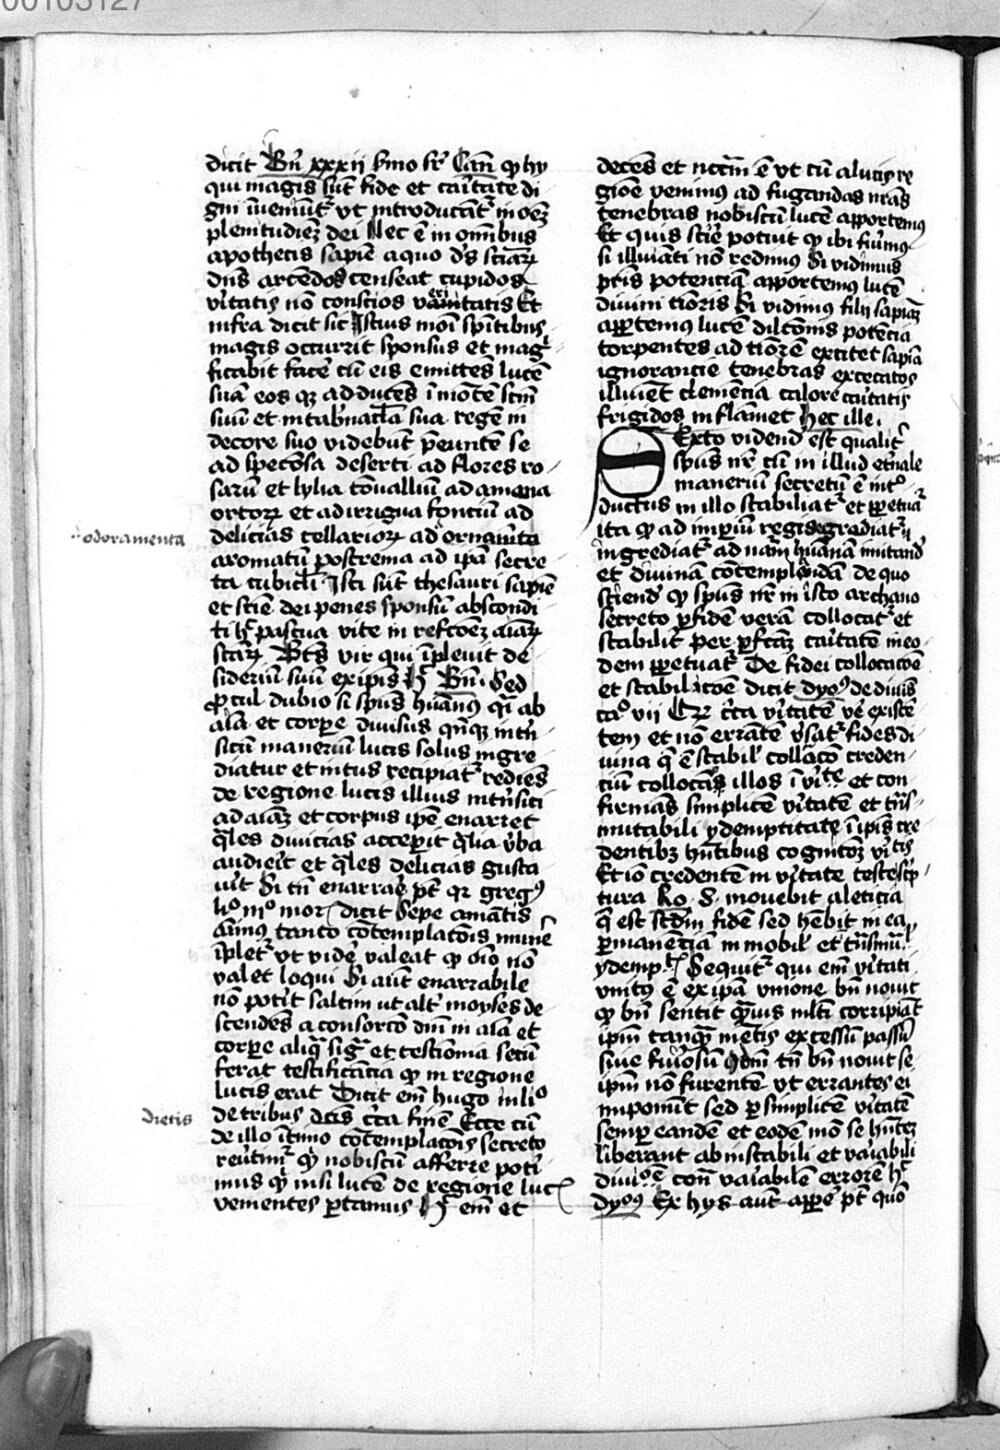 00103127
dicit Bñ xxxij s̄mo sr̄ Cañ ꝙ hij
qui magis sūt fide et caͥtate di
gni īueniūtᷣ vt introducātᷣ in oēȝ
plenitudiēȝ dei Nec ē in om̄ibus
apothecis sapiē a quo dꝰs sciāꝝ
dn̄s arcēdos censeat cupidos
vͥtatis nō conscios vanitatis Et
infra dicit sic Istius mōi spīritibꝰ
magis occurrit sponsus et mag
ficabit facē cū eis emittēs lucē
suā eos qꝫ adducēs ī mōtē scm̄
suū et in tab̄nacl̄a sua regē in
decore suo videbūt p̄euntē se
ad speciosa deserti ad flores ro
sarū et lylia cōualliū ad amena
ortoꝝ et ad irrigua fonciū ad
delicias cellarioꝝ ad ornam̄ta
odoramenta
aromatū postrema ad ip̄a secre
ta cubicl̄i Isti sūt thesauri sapiē
et sciē dei penes sponsū abscondi
ti hᷣ pascua vite in refcōēȝ aīaꝝ
sctāꝝ Bt̄s vir qui īpleuit de
sideriū suū ex ipis hᷣ Bñ. Sed
ꝓcul dubio si spūs huānꝰ qͥ ab
aīa et corpe diuisus
situ maneriū lucis solus ingre
diatur et intus recipiatᷣ rediēs
de regione lucis illius int̄siti
ad aīaȝ et corpus ip̄e enarret
q̄les diuicias acceꝑit q̄lia v̄ba
audieͥt et q̄les delicias gusta
uͥt Si tn̄ enarrare pt̄ qꝛ gregꝰ
liᵒ mᵒ mor dicit Sepe amātis
aīmus tanto cōtemplacōis mūne
īpletᷣ vt videre valeat ꝙ oīo nō
valet loqui Si aūt enarrabile
nō potͥt saltim ut altᷣ moyses de
scendēs a consorcō dn̄i in aīā et
corpe aliq̄ sigᷣ et testimōia secū
ferat testificācia ꝙ in regione
lucis erat Dicit em̄ hugo in liᵒ
de tribus deis c̄ca finē Ecce cū
dietis
de illo īt̄no cōtemplacōis secreto
reūtimᷣ qͥ nobiscū afferre poti
mus qͥ nisi lucē de regione luc
venientes portamus hᷣ em̄ et
decēs et nccm̄ ē vt cū a lucis re
gioē venimꝰ ad fugandas nr̄as
tenebras nobiscū lucē apportemꝰ
Et quis scire potuit ꝙ ibi fuimꝰ
si illuīati nō redimus Si vidimus
pr̄is potenciā apportemꝰ lucē
diuini timoris Si vidimus filij sapiāȝ
apportemꝰ lucē dilcōnis potēcia
torpentes ad timorē excitet sapīa
ignorancie tenebras excecatos
illuīet clemēncia calore caͥtatis
frigidos inflāmet hec ille.
Sexto vidend̄ est qualitᷣ
spūs nr̄ cū in illud et̄nale
maneriū secretū ē intᵒ
ductus in illo stabiliatᷣ et ꝑpetuatᷣ
ita ꝙ ad imꝑiū regis egrediatᷣ et
ingrediatᷣ ad nām huānā imitand̄
et diuinā cōtemplandā de quo
sciend̄ ꝙ spūs nr̄ in isto archano
secreto ꝑ fidē verā collocatᷣ et
stabilitᷣ per ꝑfcāȝ caͥtatē in eo
dem ꝑpetuatᷣ De fidei collocacōe
et stabilicōe dicit dyoꝰ de diuīs
caᵒ vii c̄ca vͥtatē ve existē
tem et nō errātē v̄satᷣ fides di
uina q̄ ē stabil' collocacō creden
ciū collocās illos ī vͥtᵗᵉ et con
firmās simplicē vͥtatē et tn̄s
mutabili ydemptitate ī ipis cre
dentibȝ hn̄tibus cognitōȝ vͥtis
Et iō credentē in vͥtate teste scͥp
tura Ro. 8. mouebit a leticia
q̄ est scd̄m fidē sed hēbit in ea
ꝑmanēciā in mobil' et
ydemp. Sequitᷣ qui em̄ vͥtati
vnitꝰ ē ex ip̄a vnione bn̄ nouit
ꝙ bn̄ sentit q̄uis ml̄ti corripiāt
ip̄m tanq̄ mētis excessū passū
siue furiosū tn̄ bn̄ nouit se
ip̄m nō furentē vt errantes ei
imponūt sed ꝑ simplicē vͥtatē
semꝑ eandē et eodē mō se hn̄tēȝ
liberant ab instabili et vaͥabili
diuiᵒē cont̄ vaͥabilē errorē hᷣ
Dyoꝰ Ex hijs aūt appēt pt̄ quō